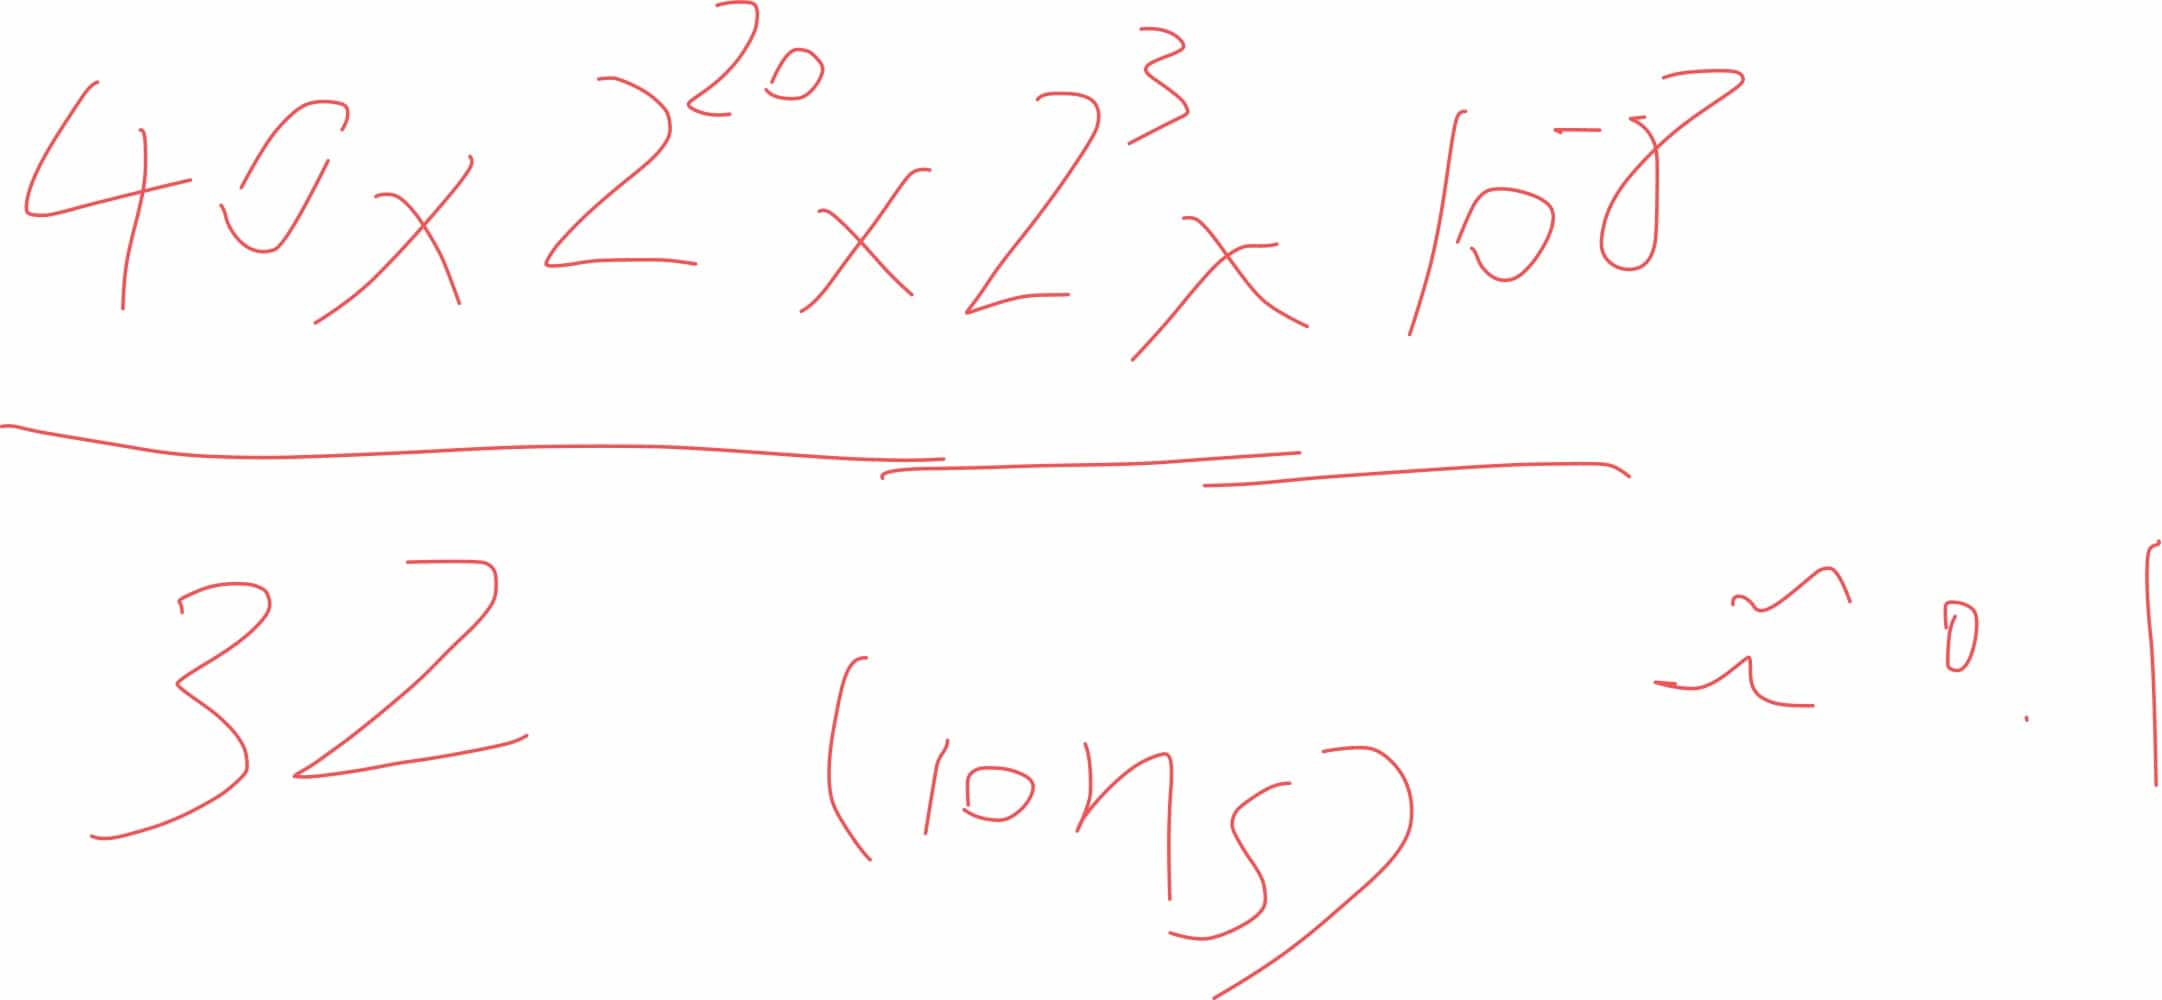 40×2²⁰×2³×10⁻⁸
32 (10ns) ≈ 0.1